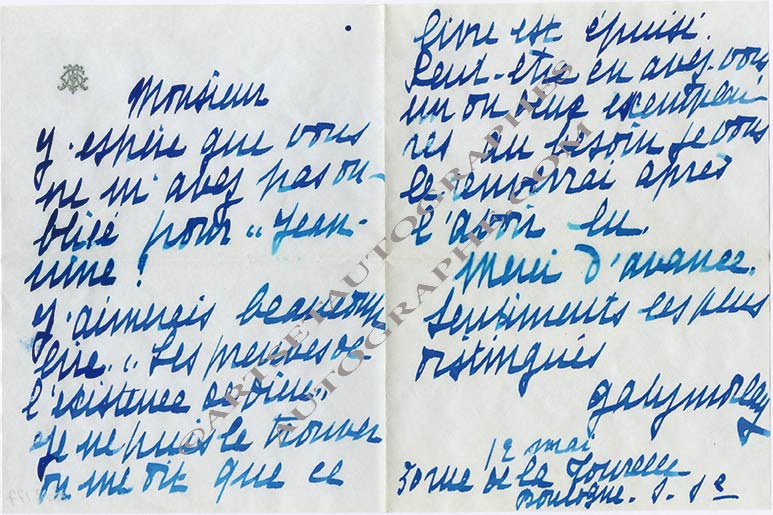 Monsieur
J'espère que vous
ne m'avez pas ou-
blié pour "Jean-
nine!
J'aimerais beaucoup
lire "Les preuves de
l'existence de Dieu"
Je ne puis le trouver
on me dit que ce
livre est épuisé.
Peut-être en avez-vous
un ou deux exemplai-
res au besoin je vous
le renverrai après
l'avoir lu.
Merci d'avance.
Sentiments les plus
distingués
Gaby Morlay
12 mai
30 rue de la Tourelle
Boulogne. s. Se
©ARTSETAUTOGRAPHES
AUTOGRAPHE.COM